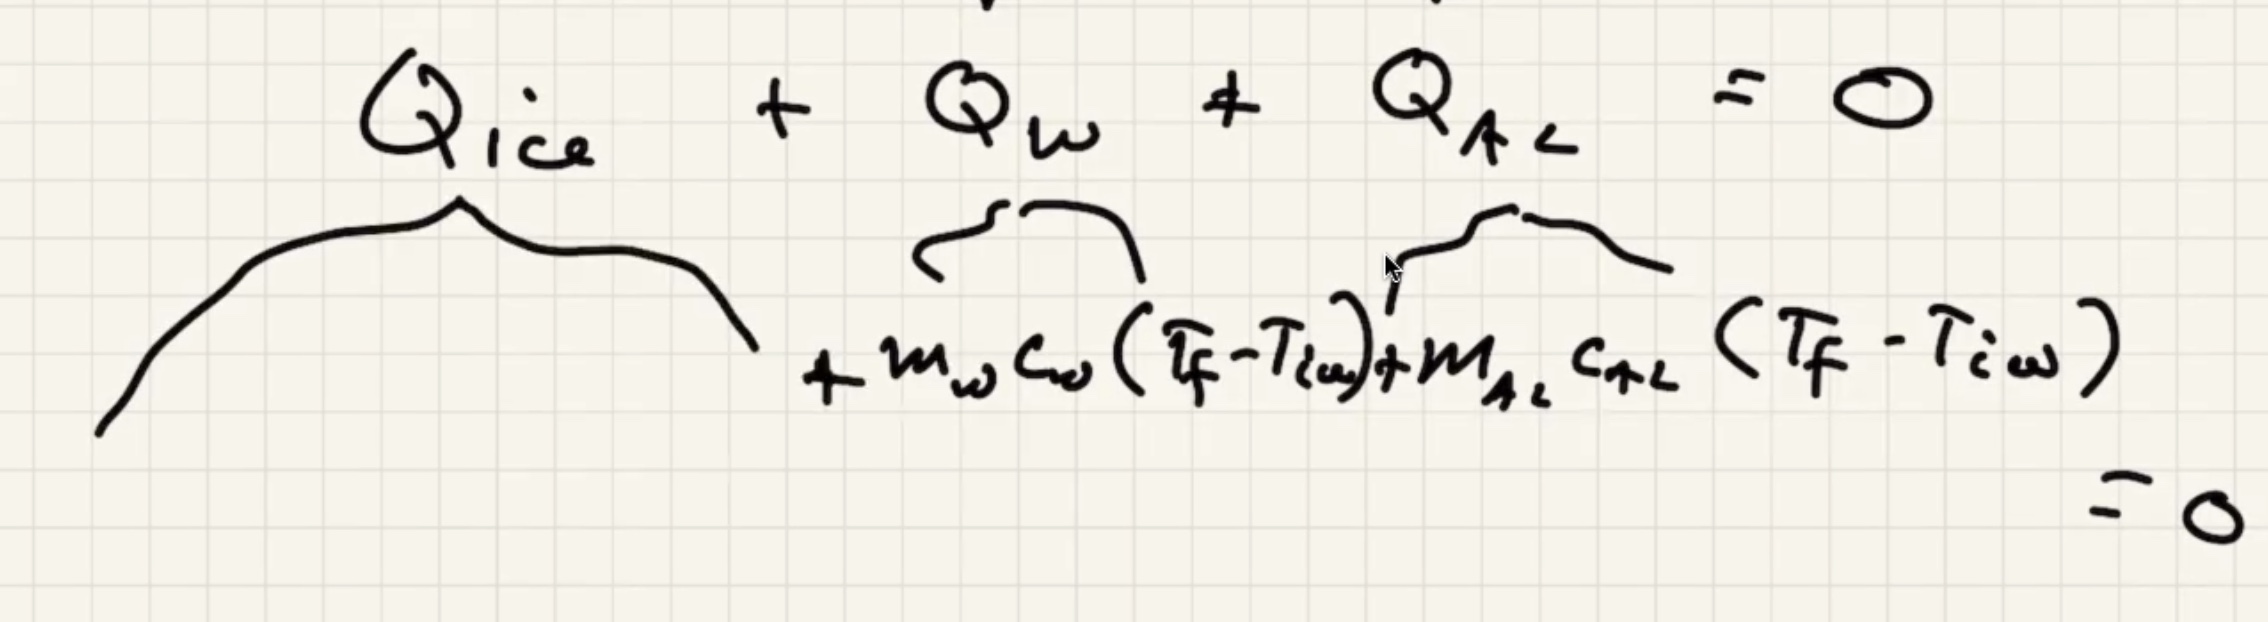 Q_ice + Q_w + Q_AL = 0
+ m_w c_w (T_f - T_iw) + m_AL c_AL (T_f - T_iw)
= 0